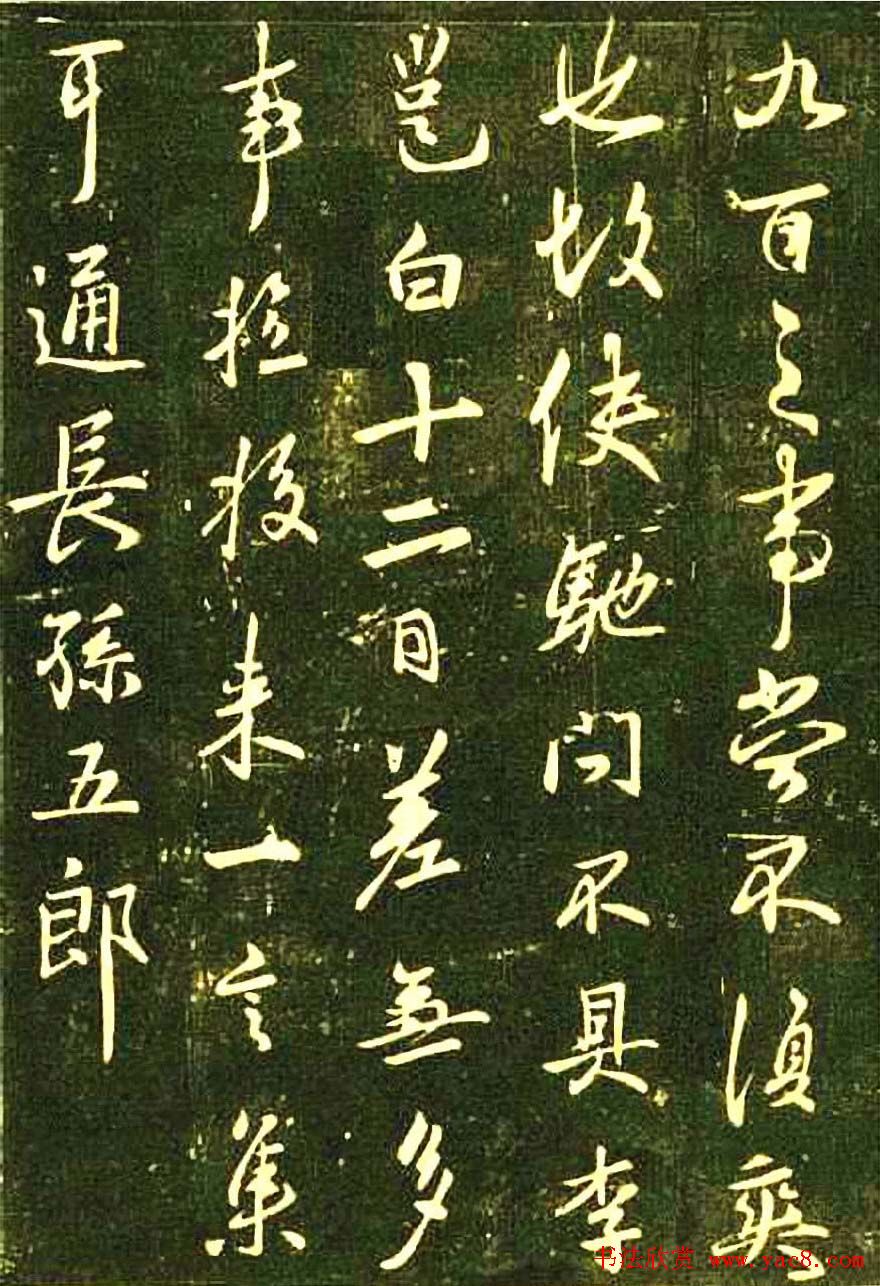 九百之事當不須爽
也故使馳問不具李
邕白十二日差無多
事来一言集
耳通長孫五郎
书法欣赏 www.yac8.com